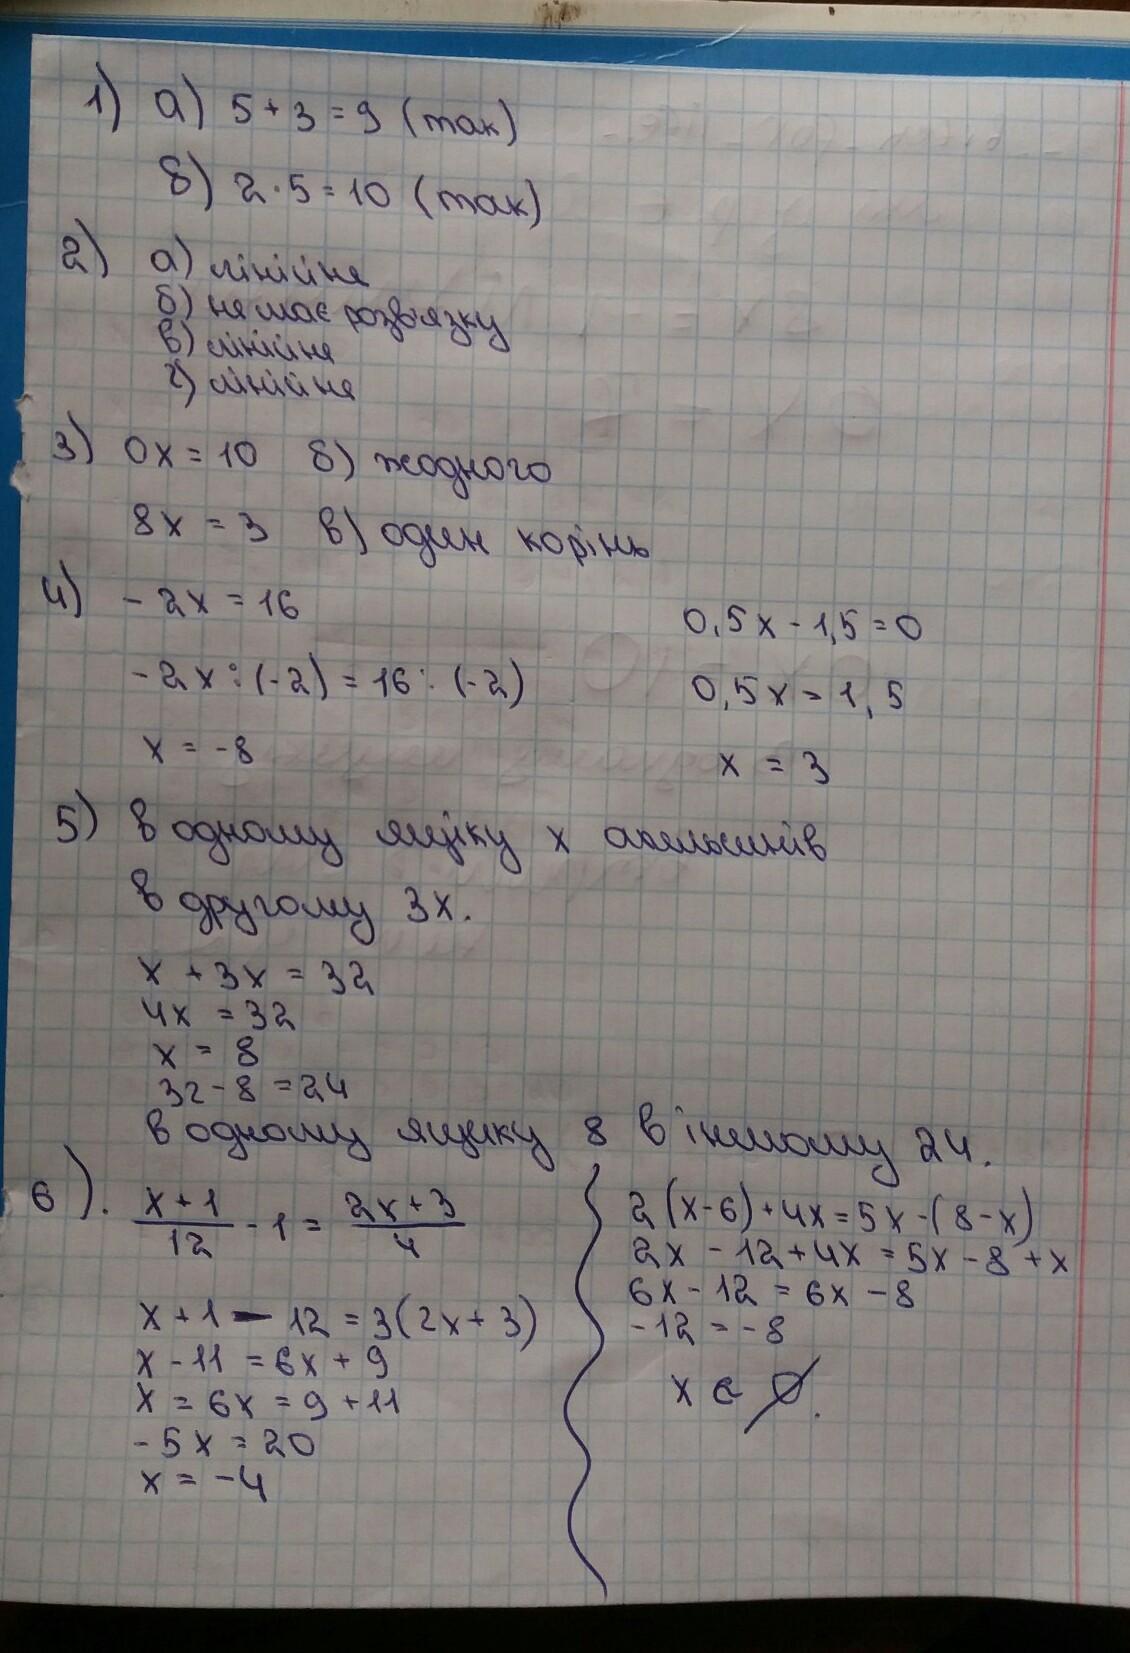 1) а) 5 + 3 = 9 (так)
б) 2 · 5 = 10 (так)
2) а) лінійне
б) не має розв'язку
в) лінійне
г) лінійне
3) 0x = 10 б) жодного
8x = 3 в) один корінь
4) - 2x = 16
- 2x : (-2) = 16 : (-2)
x = -8
0,5x - 1,5 = 0
0,5x = 1,5
x = 3
5) в одному ящіку x апельсинів
в другому 3x.
x + 3x = 32
4x = 32
x = 8
32 - 8 = 24
в одному ящику 8 в іншому 24.
6). (x + 1)/12 - 1 = (2x + 3)/4
x + 1 - 12 = 3(2x + 3)
x - 11 = 6x + 9
x = 6x = 9 + 11
- 5x = 20
x = -4
2(x-6) + 4x = 5x - (8-x)
2x - 12 + 4x = 5x - 8 + x
6x - 12 = 6x - 8
-12 = -8
x ∈ ∅.